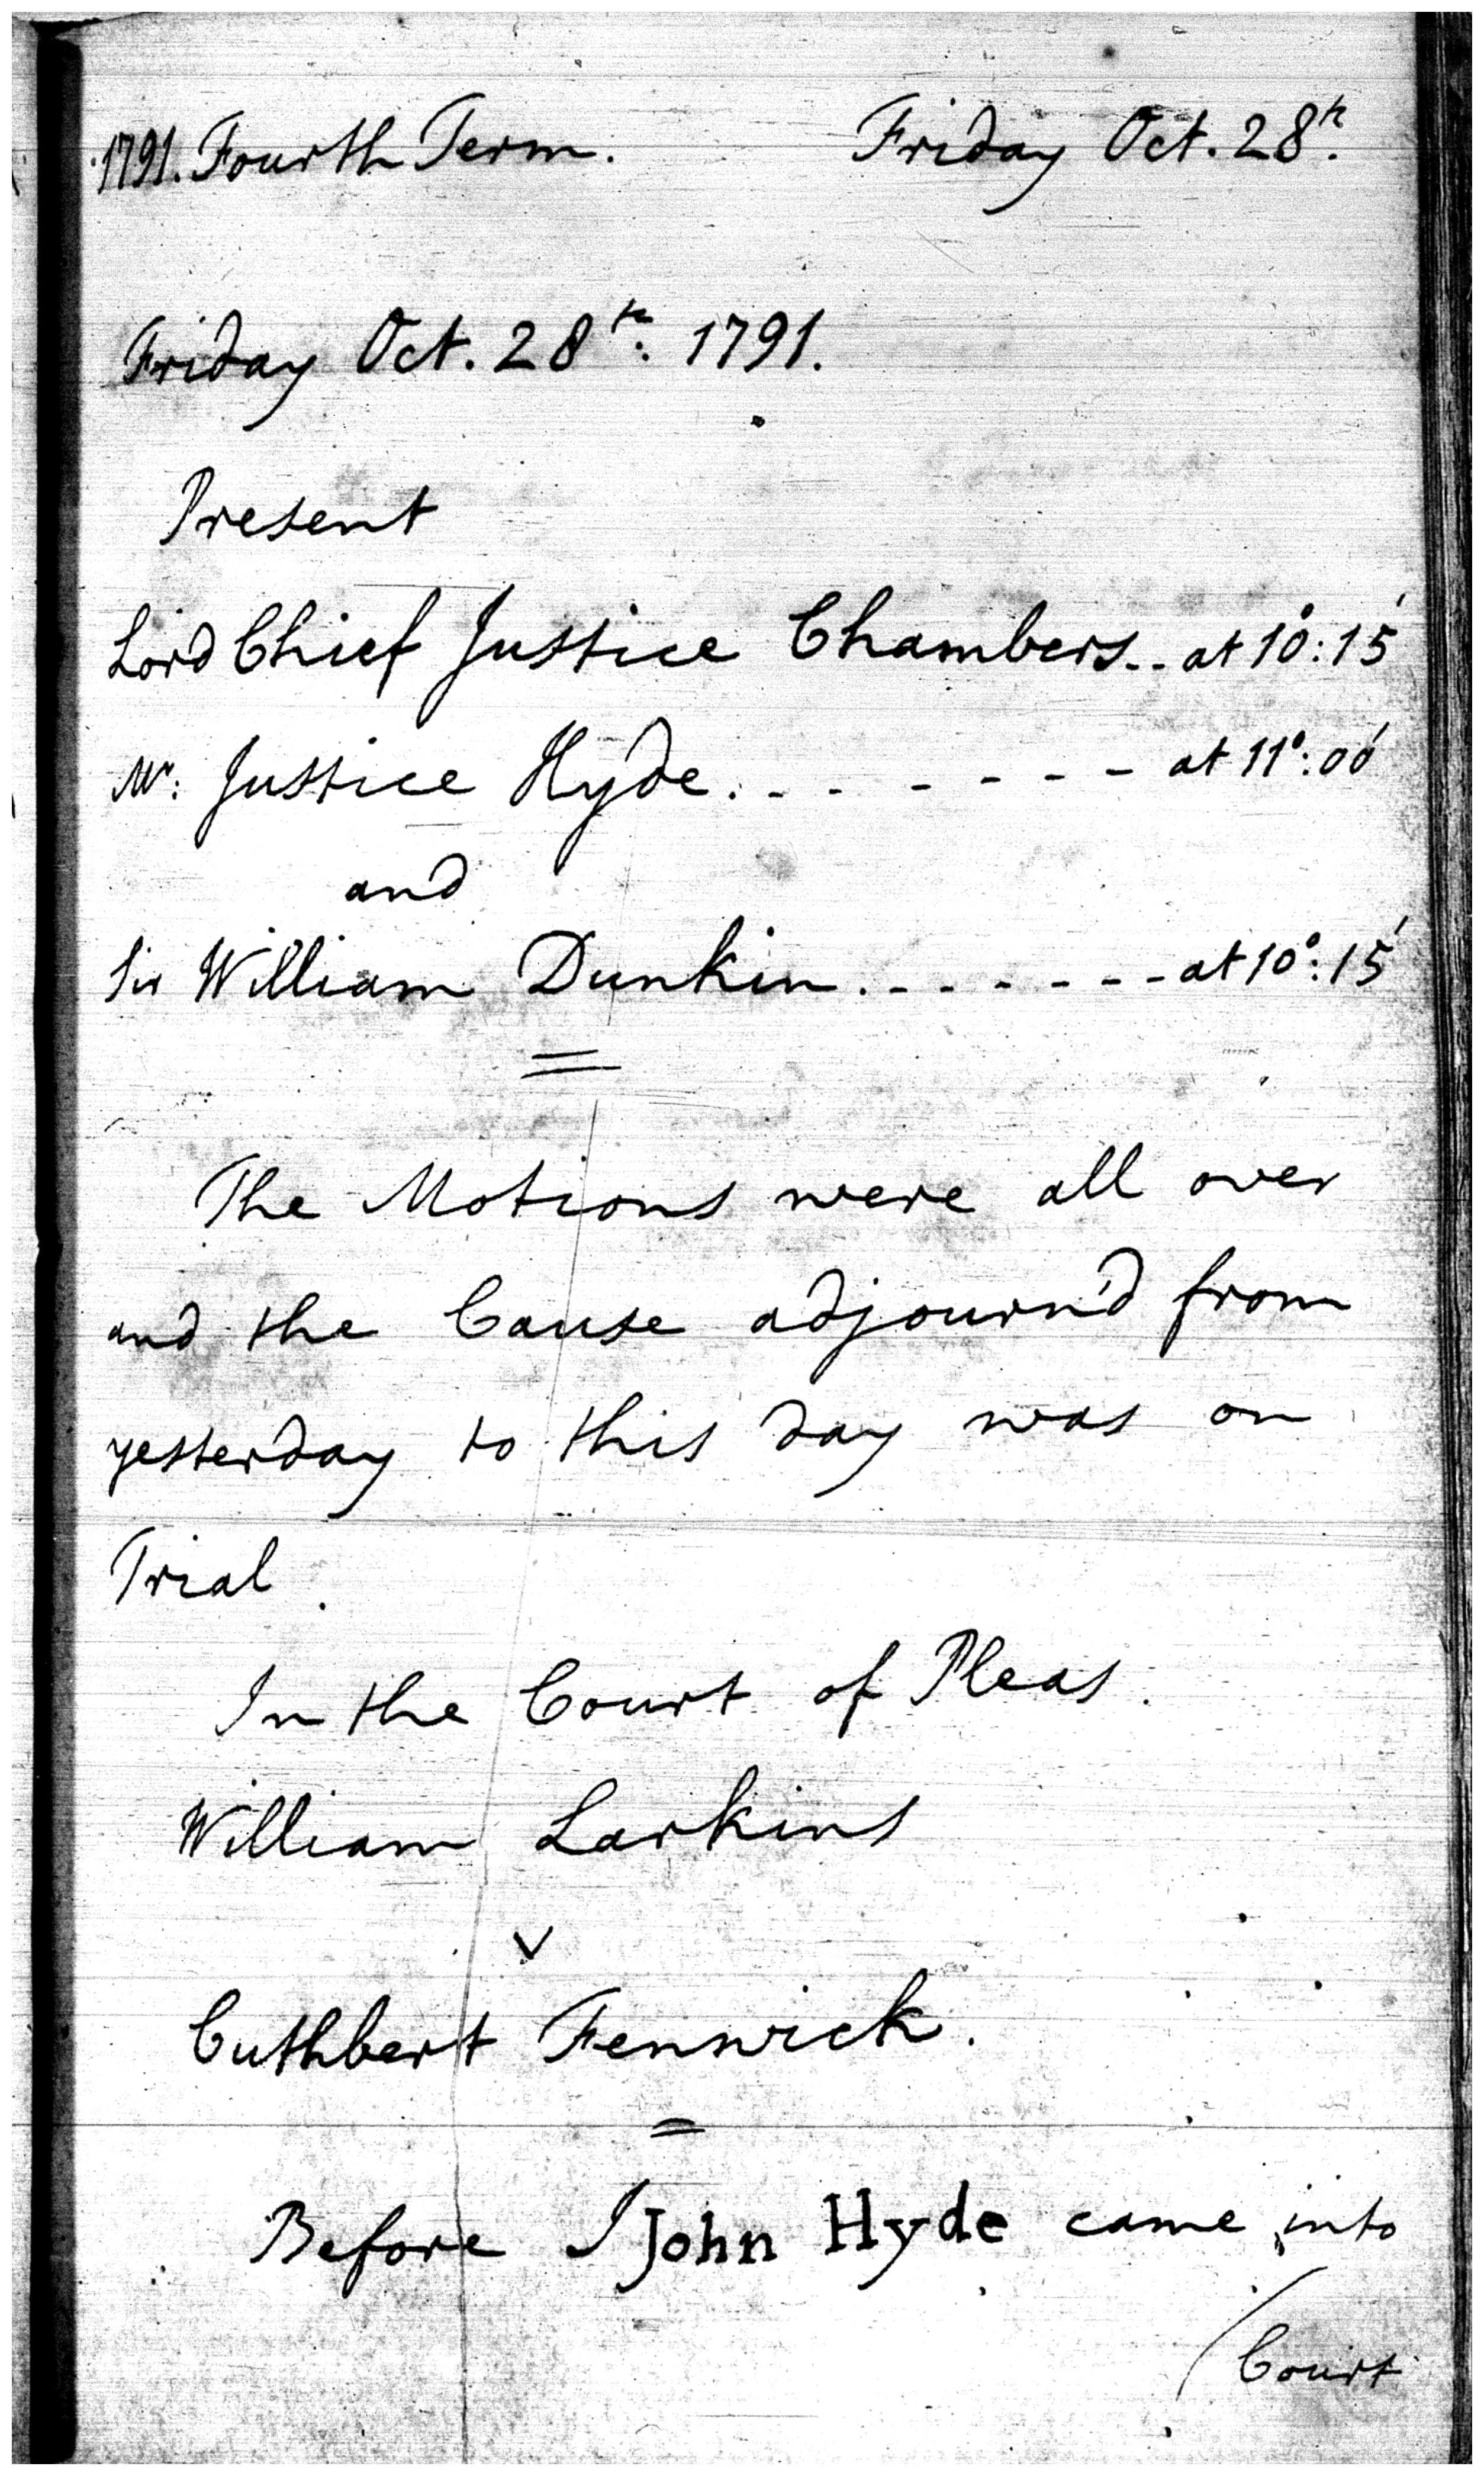 1791. Fourth Term. Friday Oct. 28th.
Friday Oct. 28th: 1791.
Present
Lord Chief Justice Chambers.. at 10°:15'
Mr: Justice Hyde. - - - - - - at 11°:00'
and
Sir William Dunkin. - - - - - - - at 10°:15'
The Motions were all over
and the Cause adjourn'd from
yesterday to this day was on
Trial.
In the Court of Pleas.
William Larkins
v
Cuthbert Fenwick.
Before I John Hyde came into
/Court